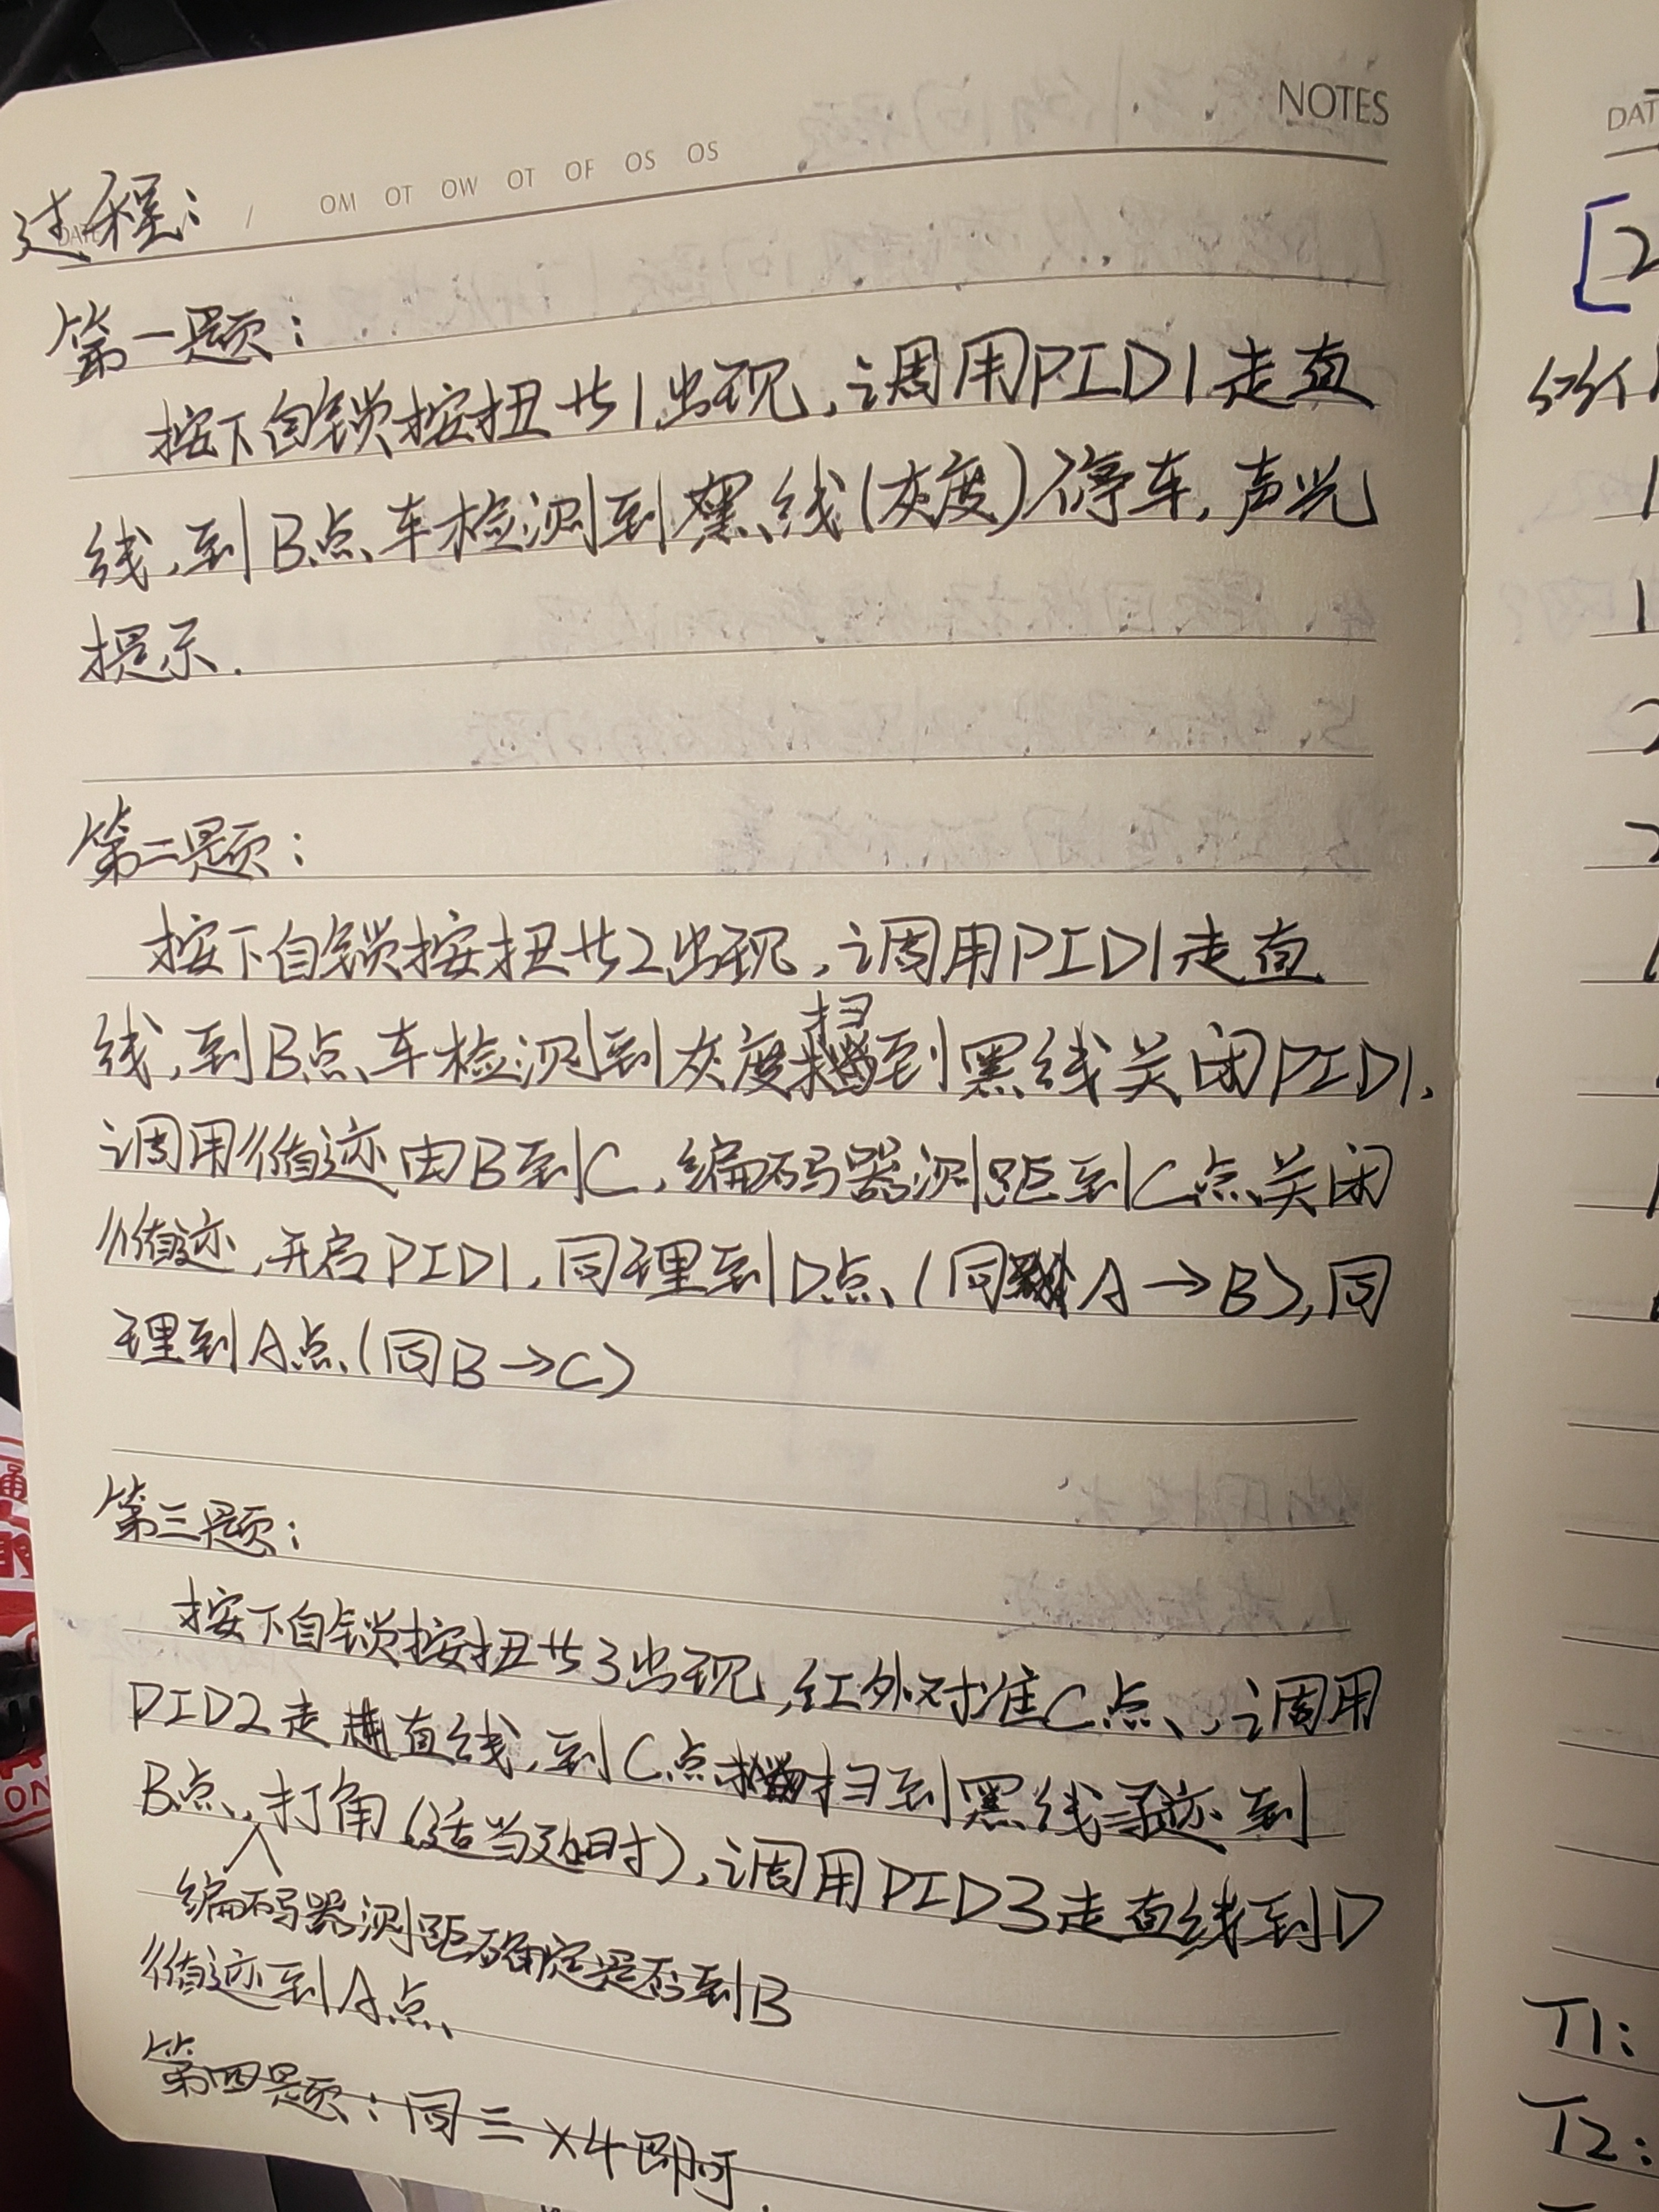 NOTES
过程:
DATE / OM OT OW OT OF OS OS
第一题:
按下自锁按扭#1出现,调用PID1走直
线,到B点车检测到黑线(灰度)停车,声光
提示.
第二题:
按下自锁按扭#2出现,调用PID1走直
线,到B点车检测到灰度扫到黑线关闭PID1,
调用循迹由B到C,编码器测距到C点关闭
循迹,开启PID1,同理到D点(同A→B),同
理到A点(同B→C)
第三题:
按下自锁按扭#3出现,红外对准C点,调用
PID2走直线,到C点扫到黑线寻迹到
B点,打角(适当延时),调用PID3走直线到D
编码器测距确定是否到B
循迹到A点
第四题:同三×4即可
DAT
[2
1
1
2
T1:
T2:
ON